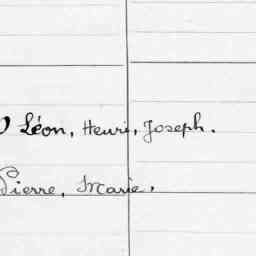 Léon, Henri, Joseph.
Pierre, Marie.